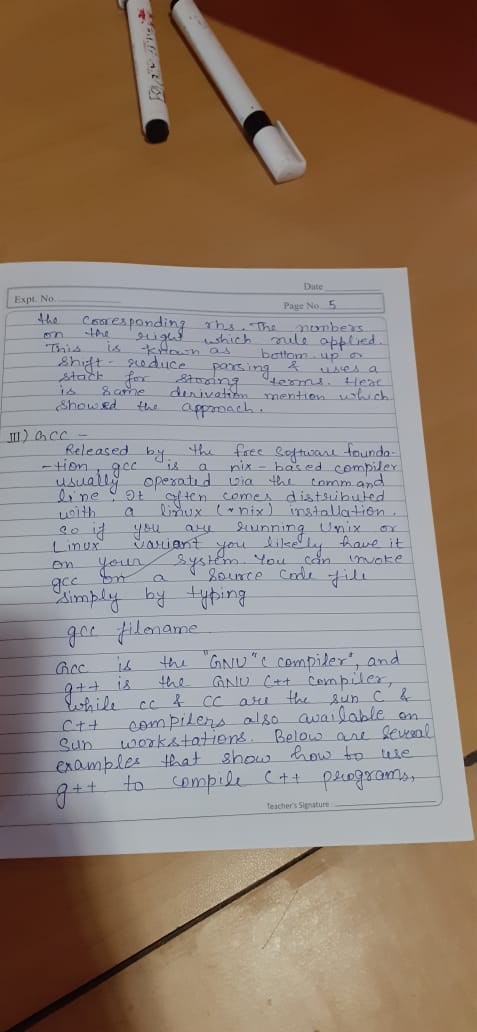 Date
Expt. No.
Page No. 5
the cooresponding rhs. The numbers
on the right which rule applied.
This is known as bottom-up or
shift-reduce parsing & uses a
stack for storing terms. Here
is same derivation mention which
showed the approach.
III) Gcc -
Released by the free Software founda-
-tion, gcc is a nix-based compiler
usually operated via the command
line. It often comes distributed
with a linux (*nix) installation.
so if you are running Unix or
Linux variant you likely have it
on your system. You can invoke
gcc on a source code file
simply by typing
gcc filename
Gcc is the "GNU" C compiler", and
g++ is the GNU C++ compiler,
while cc & CC are the sun C &
C++ compilers also available on
Sun workstations. Below are several
examples that show how to use
g++ to compile C++ programs,
Teacher's Signature